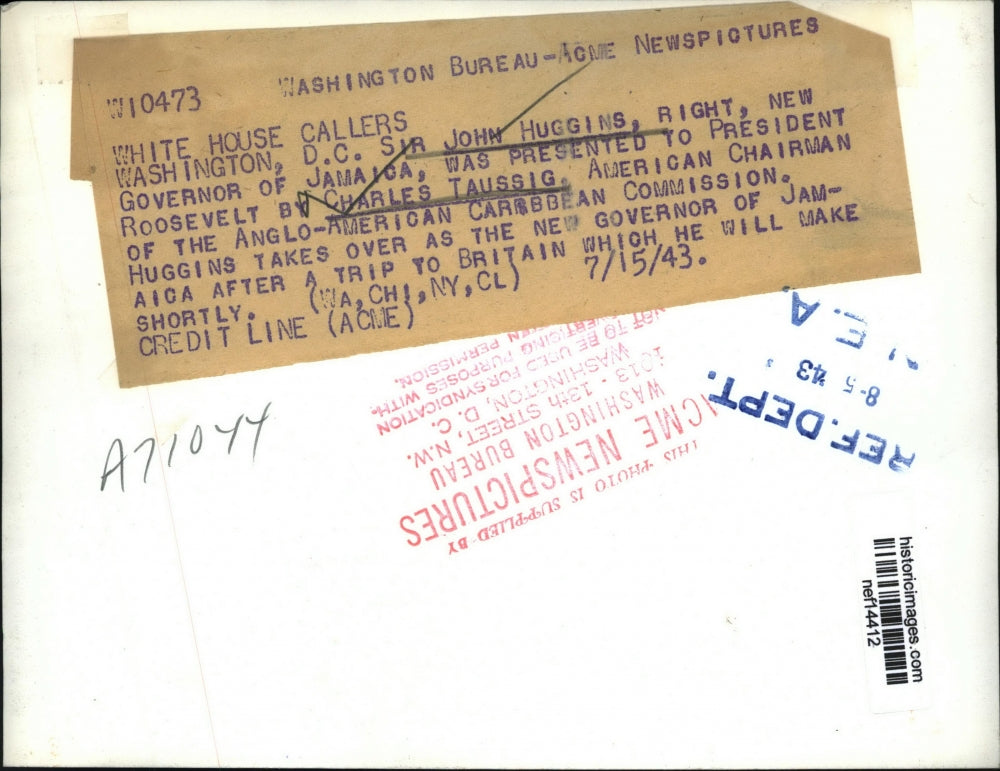 W10473 WASHINGTON BUREAU-ACME NEWSPICTURES
WHITE HOUSE CALLERS
WASHINGTON, D.C. SIR JOHN HUGGINS, RIGHT, NEW
GOVERNOR OF JAMAICA, WAS PRESENTED TO PRESIDENT
ROOSEVELT BY CHARLES TAUSSIG, AMERICAN CHAIRMAN
OF THE ANGLO-AMERICAN CARRBBEAN COMMISSION.
HUGGINS TAKES OVER AS THE NEW GOVERNOR OF JAM-
AICA AFTER A TRIP TO BRITAIN WHICH HE WILL MAKE
SHORTLY. (WA,CHI,NY,CL) 7/15/43.
CREDIT LINE (ACME)
A71044
THIS PHOTO IS SUPPLIED BY
ACME NEWSPICTURES
WASHINGTON BUREAU
1013 - 13th STREET, N.W.
WASHINGTON, D. C.
NOT TO BE USED FOR SYNDICATION
PURPOSES WITH-
PERMISSION.
REF. DEPT.
8-5 '43
N.E.A.
historicimages.com
nef14412